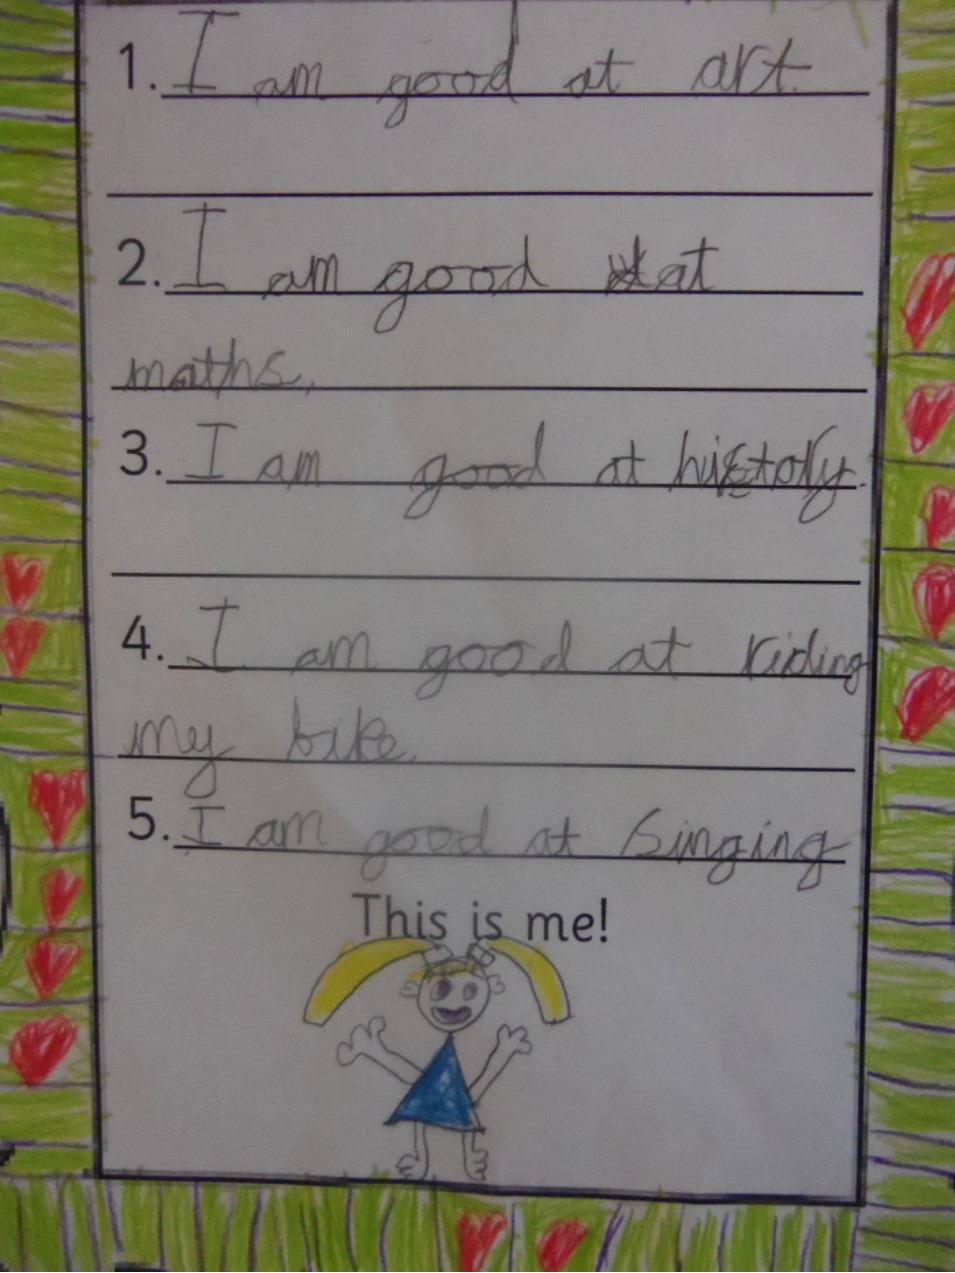 1. I am good at art.
2. I am good at
maths.
3. I am good at history.
4. I am good at riding
my bike.
5. I am good at singing
This is me!